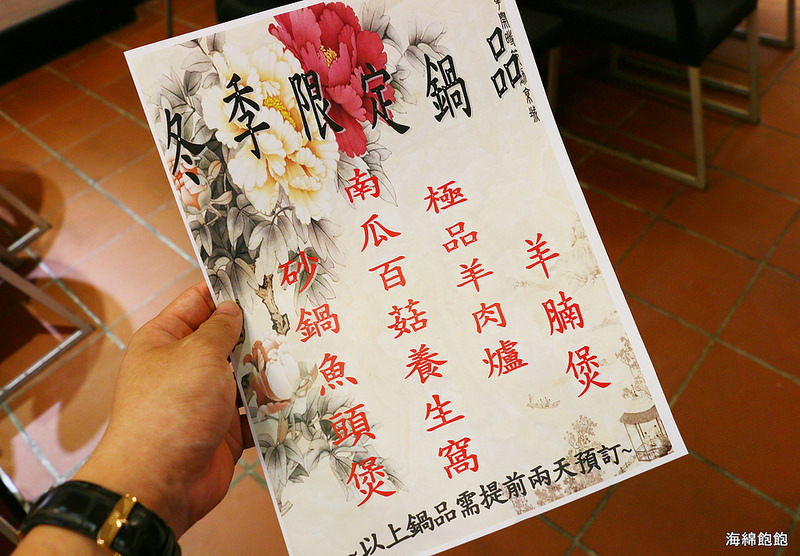 冬季限定鍋品
羊腩煲
極品羊肉爐
南瓜百菇養生窩
砂鍋魚頭煲
~以上鍋品需提前兩天預訂~
海綿飽飽